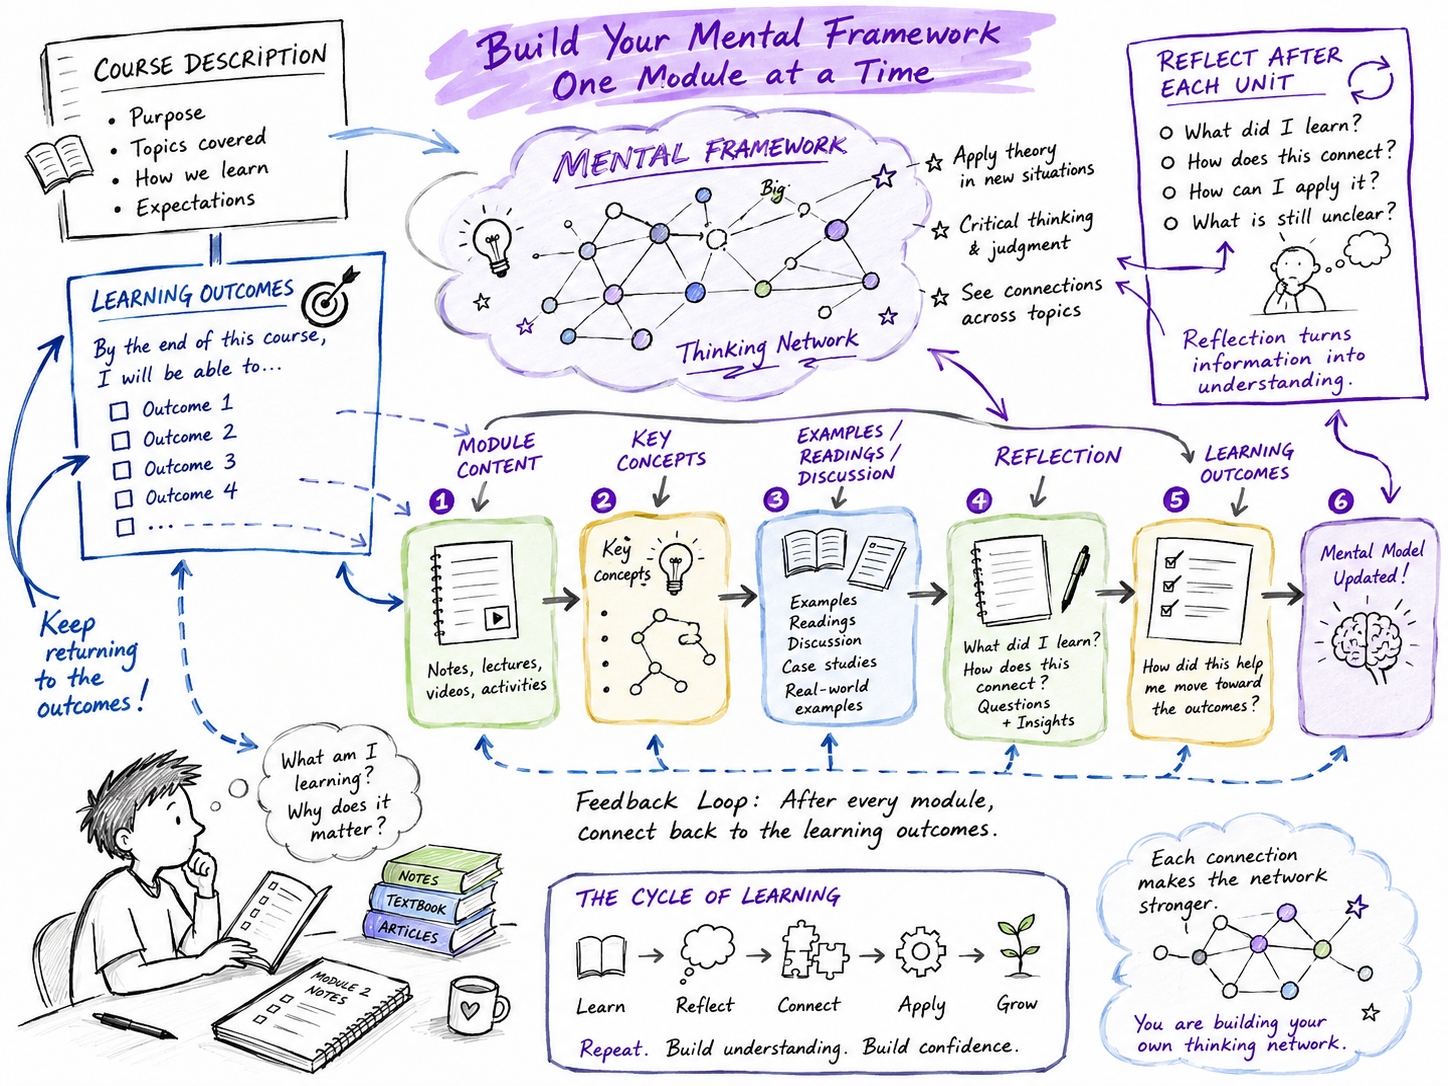 Build Your Mental Framework
One Module at a Time
COURSE DESCRIPTION
• Purpose
• Topics covered
• How we learn
• Expectations
LEARNING OUTCOMES
By the end of this course,
I will be able to...
Outcome 1
Outcome 2
Outcome 3
Outcome 4
...
Keep
returning
to the
outcomes!
MENTAL FRAMEWORK
Big
Thinking Network
Apply theory
in new situations
Critical thinking
& judgment
See connections
across topics
REFLECT AFTER
EACH UNIT
What did I learn?
How does this connect?
How can I apply it?
What is still unclear?
Reflection turns
information into
understanding.
MODULE
CONTENT
1
Notes, lectures,
videos, activities
KEY
CONCEPTS
2
Key
Concepts
EXAMPLES /
READINGS /
DISCUSSION
3
Examples
Readings
Discussion
Case studies
Real-world
examples
REFLECTION
4
What did I learn?
How does this
connect?
Questions
+ Insights
LEARNING
OUTCOMES
5
How did this help
me move toward
the outcomes?
6
Mental Model
Updated!
Feedback Loop: After every module,
connect back to the learning outcomes.
What am I
learning?
Why does it
matter?
NOTES
TEXTBOOK
ARTICLES
MODULE 2
NOTES
THE CYCLE OF LEARNING
Learn
Reflect
Connect
Apply
Grow
Repeat. Build understanding. Build confidence.
Each connection
makes the network
stronger.
You are building your
own thinking network.